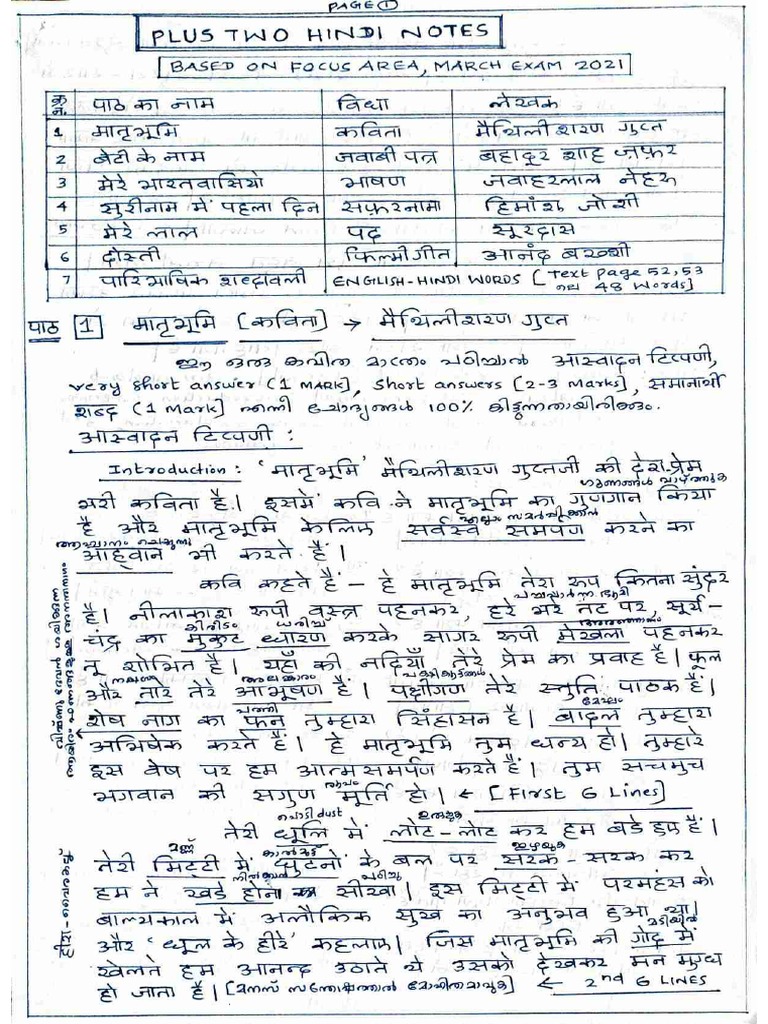 PAGE ①
PLUS TWO HINDI NOTES
BASED ON FOCUS AREA, MARCH EXAM 2021
क्र.न. पाठ का नाम विधा लेखक
1 मातृभूमि कविता मैथिलीशरण गुप्त
2 बेटी के नाम जवाबी पत्र बहादूर शाह ज़फ़र
3 मेरे भारतवासियो भाषण जवाहरलाल नेहरू
4 सुरीनाम में पहला दिन सफ़रनामा हिमांशु जोशी
5 मेरे लाल पद सूरदास
6 दोस्ती फिल्मी गीत आनंद बख्शी
7 पारिभाषिक शब्दावली ENGLISH-HINDI WORDS [Text page 52,53
ലെ 48 words]
पाठ 1 मातृभूमि [कविता] → मैथिलीशरण गुप्त
ഈ ഒരു കവിത മാത്രം പഠിച്ചാൽ आस्वादन टिप्पणी,
very short answer (1 MARK], short answers [2-3 marks], समानार्थी
शब्द (1 mark] എന്നീ ചോദ്യങ്ങൾ 100% കിട്ടുന്നതായിരിക്കും.
आस्वादन टिप्पणी :
Introduction : 'मातृभूमि' मैथिलीशरण गुप्तजी की देश-प्रेम
ഗുണങ്ങൾ വാഴ്ത്തുക
भरी कविता है। इसमें कवि ने मातृभूमि का गुणगान किया
എല്ലാം സമർപ്പിക്കാൻ
है और मातृभूमि केलिए सर्वस्व समर्पण करने का
ആഹ്വാനം ചെയ്യുന്നു
आह्वान भी करते हैं।
कवि कहते हैं - हे मातृभूमि तेरा रूप कितना सुंदर
है। नीलाकाश रूपी वस्त्र पहनकर, हरे भरे तट पर, सूर्य-
കിരീടം ധരിച്ച്
चंद्र का मुकुट धारण करके सागर रूपी मेखला पहनकर
तू शोभित है। यहाँ की नदियाँ तेरे प्रेम का प्रवाह है। फूल
നക്ഷത്രം അലങ്കാരം പക്ഷിക്കൂട്ടങ്ങൾ
और तारे तेरे आभूषण हैं। पक्षीगण तेरे स्तुति पाठक हैं।
പത്തി മേഘം
शेष नाग का फन तुम्हारा सिंहासन है। बादल तुम्हारा
अभिषेक करते हैं। हे मातृभूमि तुम धन्य हो। तुम्हारे
इस वेष पर हम आत्मसमर्पण करते हैं। तुम सचमुच
രൂപം
भगवान की सगुण मूर्ति हो। ← [First 6 Lines]
പൊടി dust ഉരുളുക
तेरी धूलि में लोट-लोट कर हम बडे हुए हैं।
മണ്ണ് കാൽമുട്ട് ഇഴയുക
तेरी मिट्टी में घुटनों के बल पर सरक सरक कर
നിൽക്കാൻ പഠിച്ചു
हम ने खडे होना सीखा। इस मिट्टी में परमहंस को
बाल्यकाल में अलौकिक सुख का अनुभव हुआ था।
മടിയിൽ
और 'धूल के हीरे' कहलाए। जिस मातृभूमि की गोद में
खेलते हम आनन्द उठाते थे उसको देखकर मन मुग्ध
हो जाता है। [മനസ് സന്തോഷത്താൽ മോഹിതമാവുക] ← 2nd 6 LINES
हीरा-വൈരക്കല്ല്